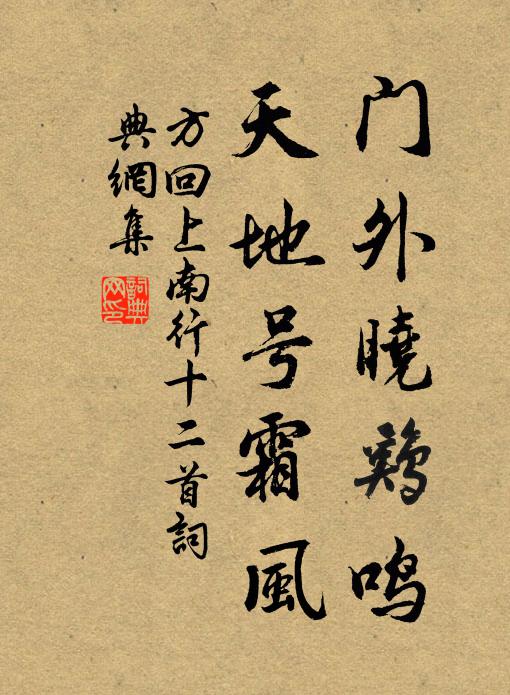 门外曉鷄鸣
天地号霜風
方回上南行十二首詞
典網集
詞典
网印